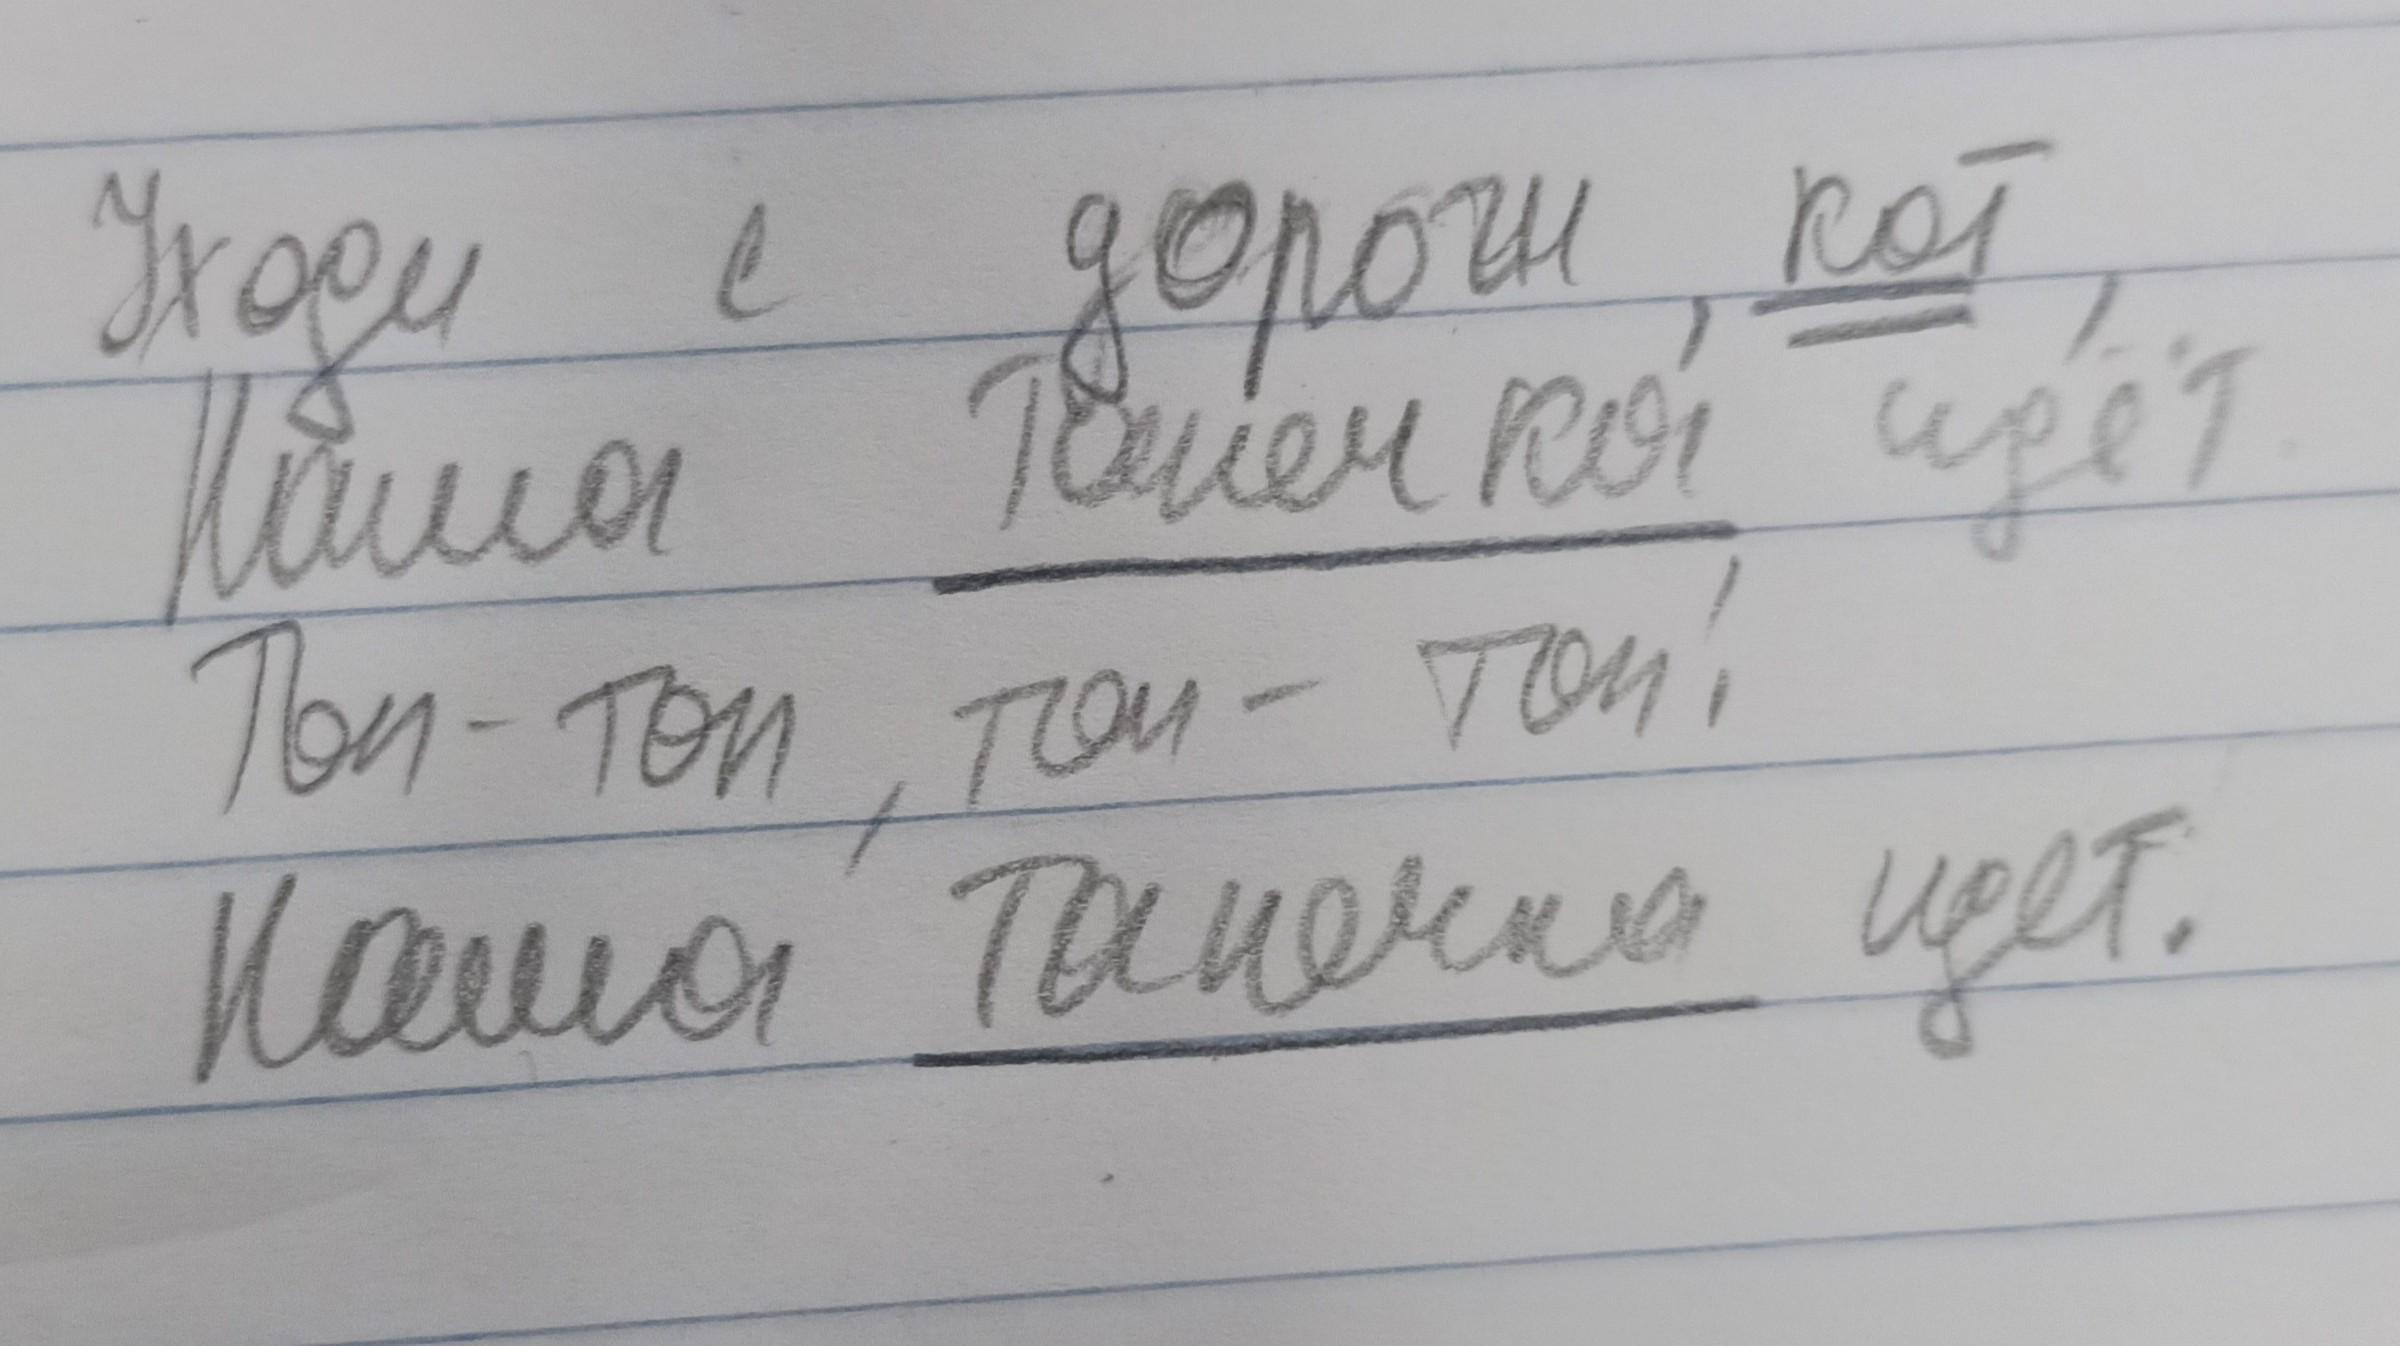 Уходи с дороги, кот,
Наша Танечка идёт.
Топ-топ, топ-топ!
Наша Танечка идет.